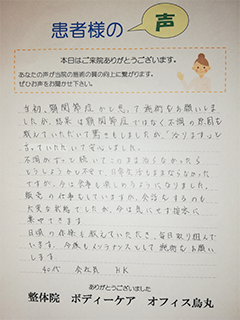 患者様の声
本日はご来院ありがとうございます。
あなたの声が当院の施術の質の向上に繋がります。
ぜひお声をお聞かせ下さい。
当初、顎関節症かと思って施術をお願いしま
したが、結果は顎関節症ではなく不調の原因を
教えていただいて驚きもしましたが、「治ります」と
言っていただいて安心しました。
不調がずっと続いてこのまま治らなかったら
どうしようかと不安で、日常生活もままならなかった
ですが、今は食事も楽しめるようになりました。
販売の仕事もしていますが、会話をするのも
大変な状態でしたが、今は気にせず接客に
集中できます。
日頃の体操も教えていただき、毎日取り組んで
います。今後もメンテナンスとして施術をお願い
します。
40代 会社員 HK
ありがとうございました
整体院 ボディーケア オフィス烏丸